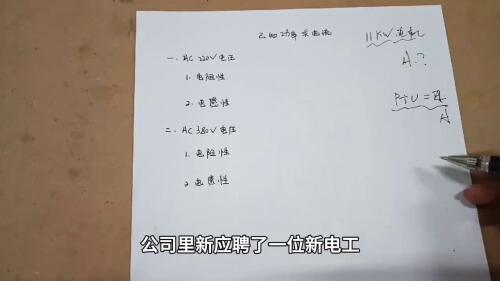 已知功率求电流
一、AC 220V 电压
1. 电阻性
2. 电感性
二、AC 380V 电压
1. 电阻性
2. 电感性
11KW 电机
A.?
P÷U=
A
公司里新应聘了一位新电工